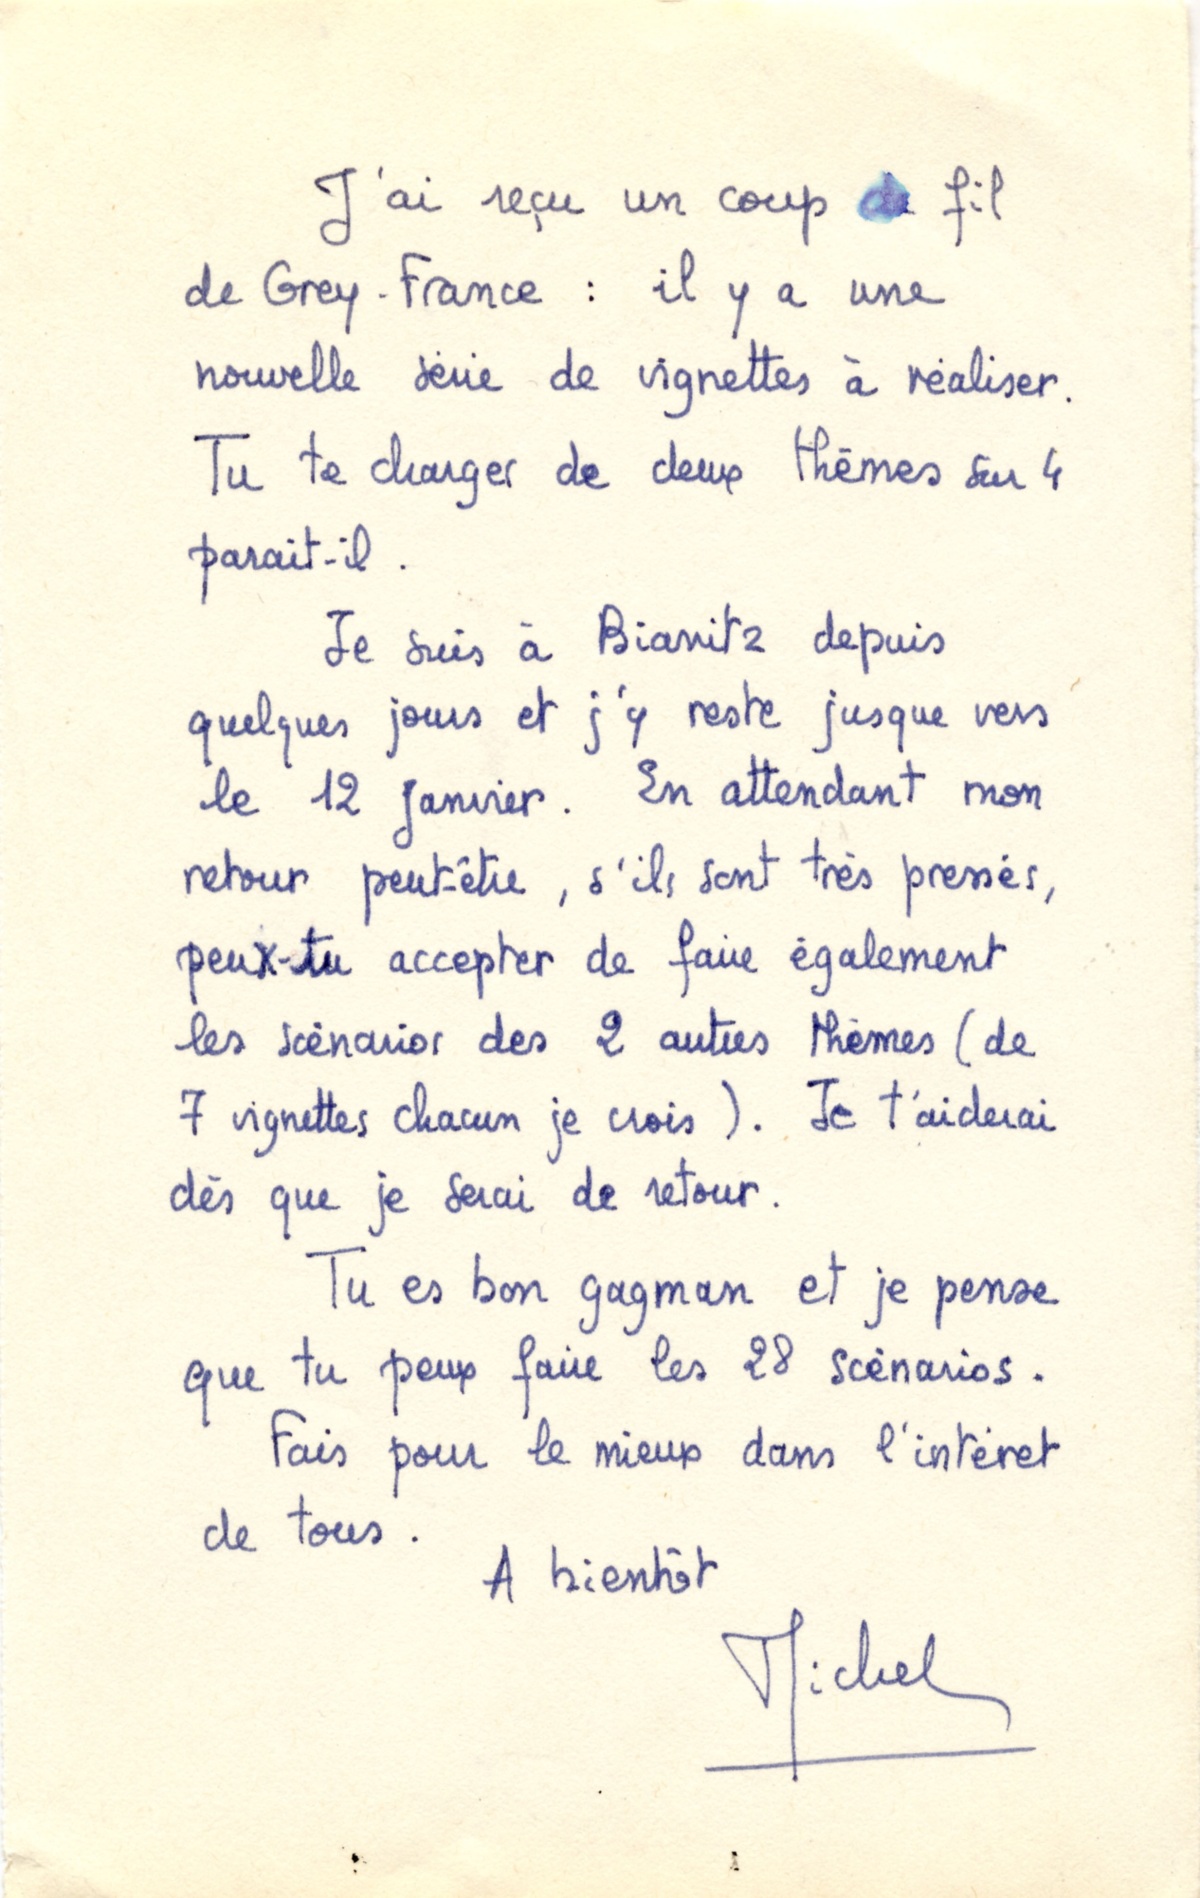 J'ai reçu un coup de fil
de Grey-France : il y a une
nouvelle série de vignettes à réaliser.
Tu te charger de deux thèmes sur 4
parait-il.
Je suis à Biarritz depuis
quelques jours et j'y reste jusque vers
le 12 Janvier. En attendant mon
retour peut-être, s'ils sont très pressés,
peux-tu accepter de faire également
les scénarios des 2 autres thèmes (de
7 vignettes chacun je crois). Je t'aiderai
dès que je serai de retour.
Tu es bon gagman et je pense
que tu peux faire les 28 scénarios.
Fais pour le mieux dans l'intéret
de tous.
A bientôt
Michel